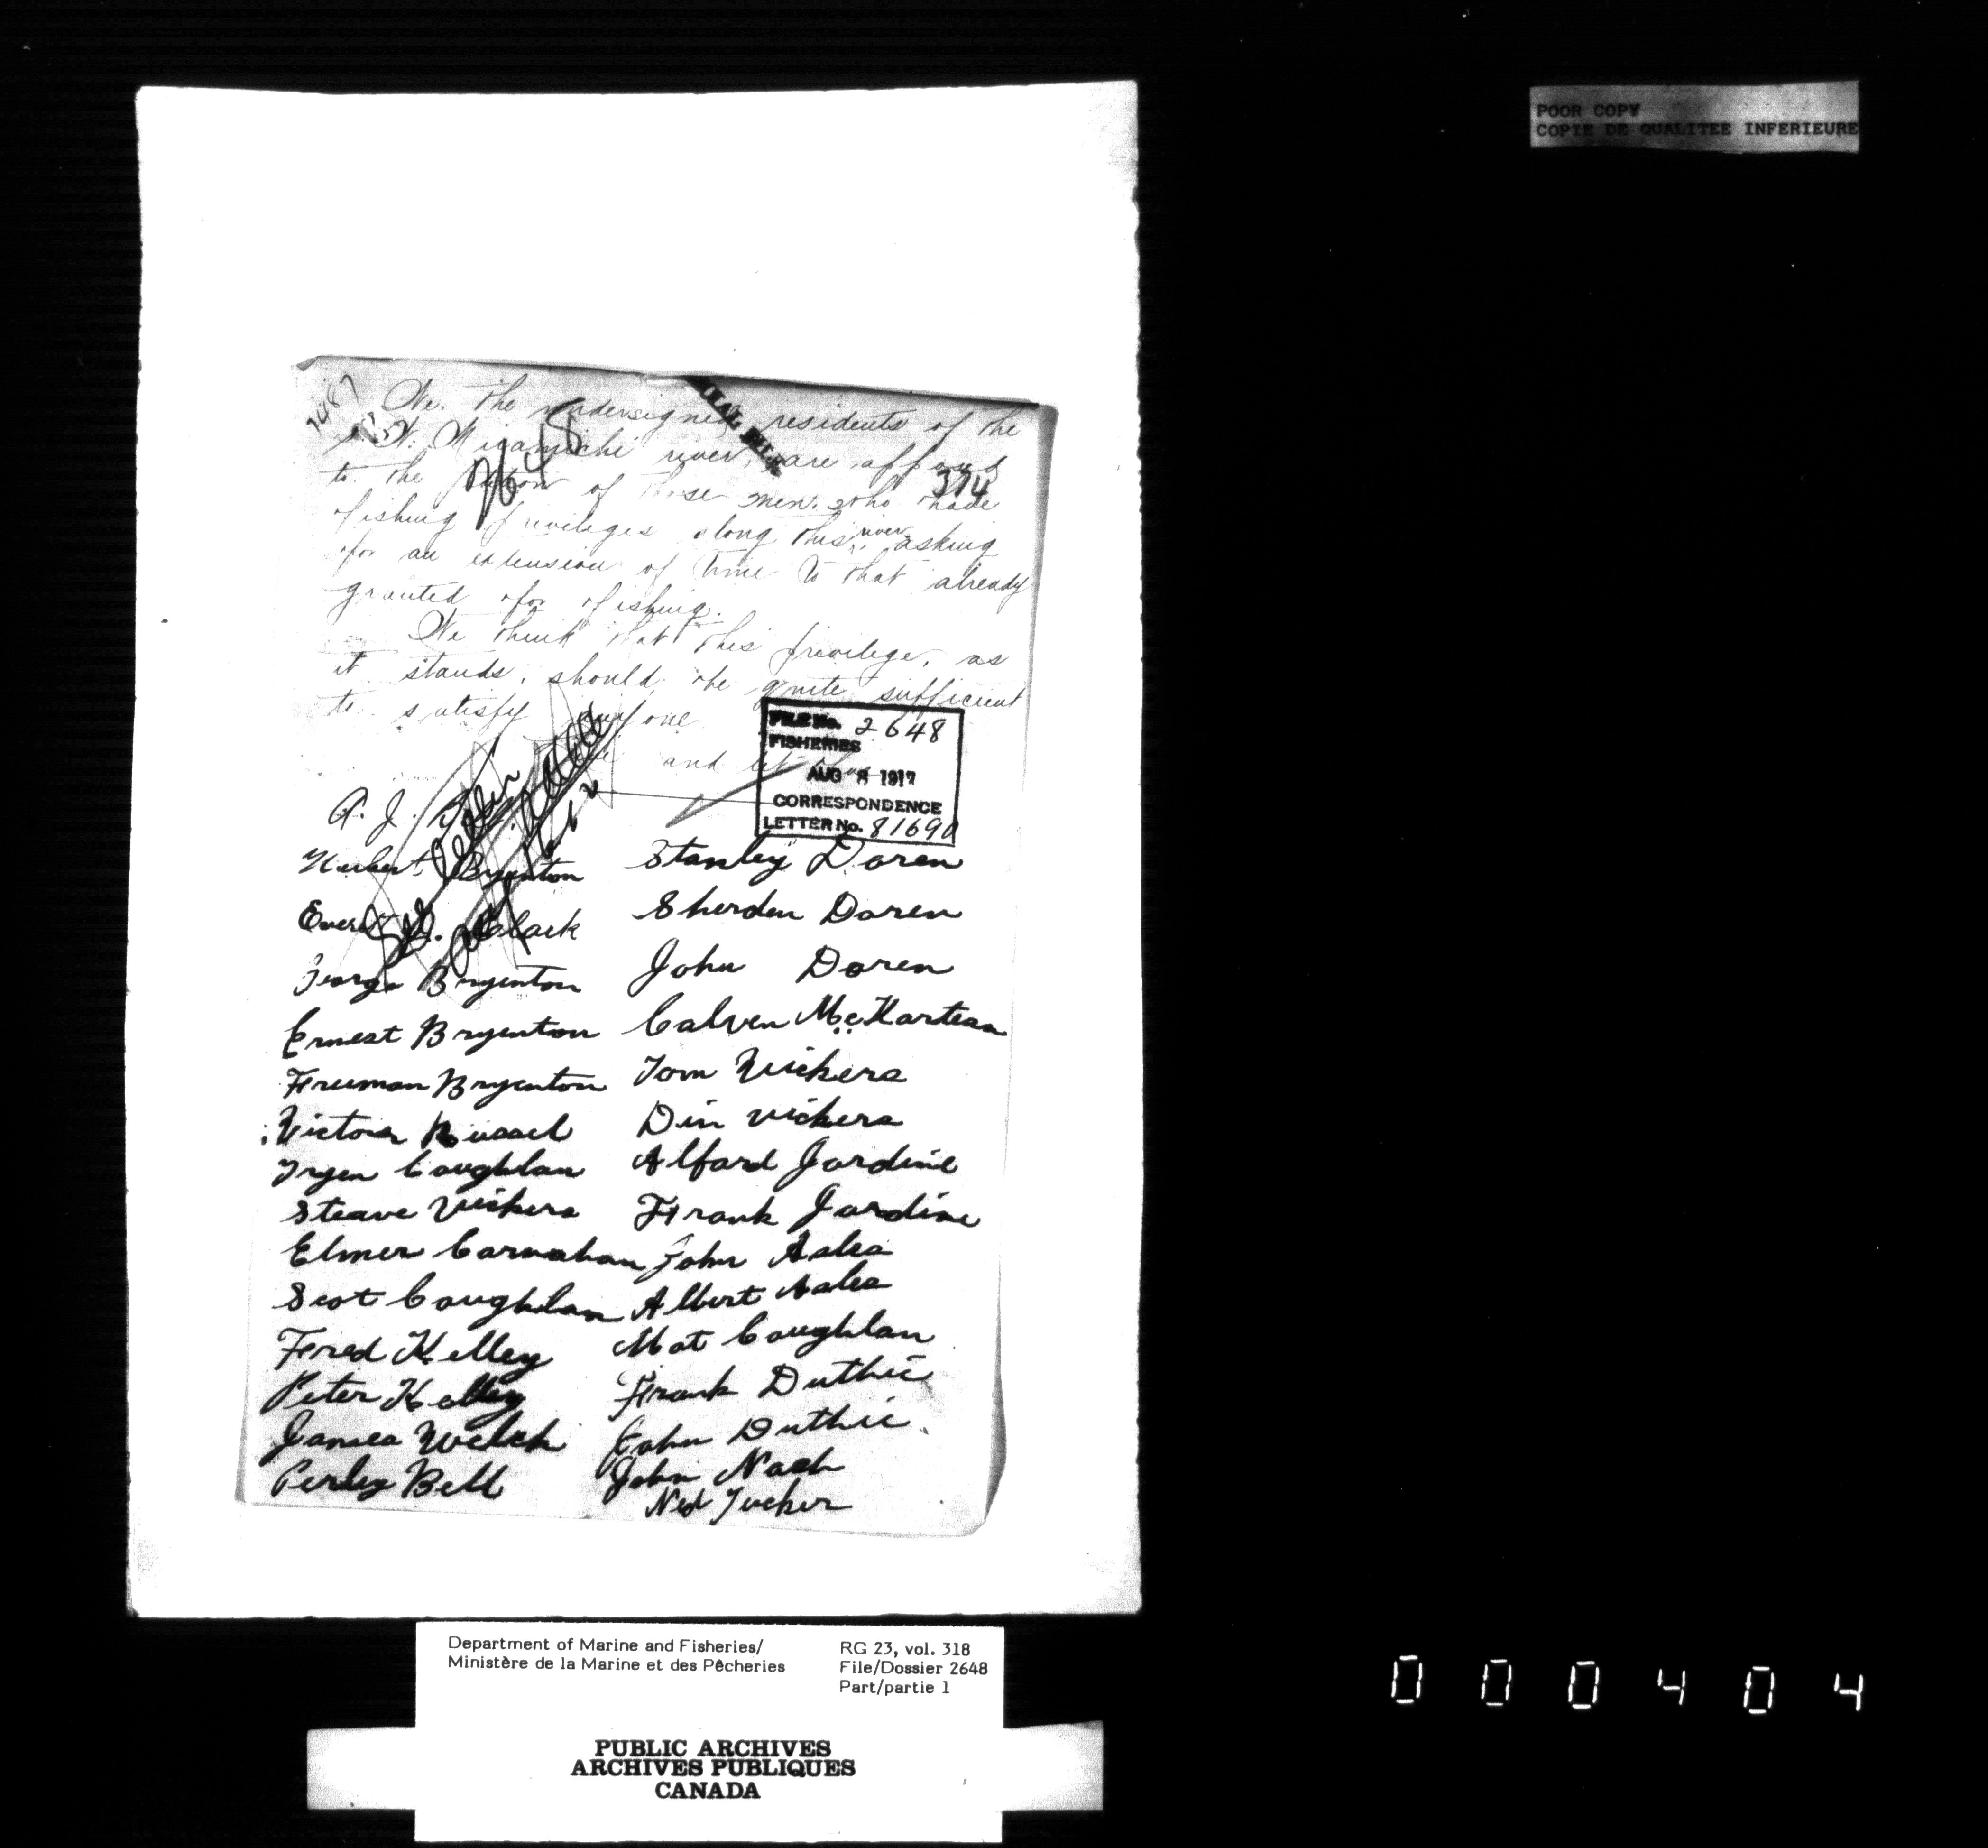 POOR COPY
COPIE DE QUALITEE INFERIEURE
We. the undersigned residents of the
N. Miramichi river, are opposed
374
to the of those men. who have
2648
fishing privileges along this river asking
for an extension of time to that already
granted for fishing.
We think that this privilege, as
it stands, should be quite sufficient
to satisfy anyone
and let
FILE No. 2648
FISHERIES
AUG 8 1912
CORRESPONDENCE
LETTER No. 81690
A. J.
Bryenton Stanley Doren
Everet Clark Sherden Doren
George Bryenton John Doren
Ernest Bryenton Calven
Freeman Bryenton Tom Vickers
Victor Russel Din vickers
Coughlan Alfard Jardine
Steave Vickers Frank Jardine
Elmer Carnahan John
Scot Coughlan Albert
Fred Kelley Mat Coughlan
Peter Kelley Frank Duthie
James Welch John Duthie
Perley Bell John Nash
Ned Tucker
Department of Marine and Fisheries/
Ministère de la Marine et des Pêcheries
RG 23, vol. 318
File/Dossier 2648
Part/partie 1
PUBLIC ARCHIVES
ARCHIVES PUBLIQUES
CANADA
000404